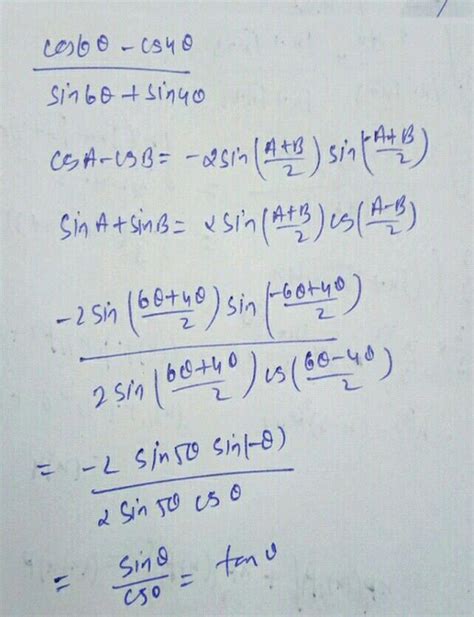 cos6θ - cos4θ
sin6θ + sin4θ
csA - csB = -2sin(A+B/2) sin(-A+B/2)
sinA + sinB = 2sin(A+B/2) cs(A-B/2)
-2sin(6θ+4θ/2) sin(-6θ+4θ/2)
2sin(6θ+4θ/2) cs(6θ-4θ/2)
= -2 sin5θ sin(-θ)
2 sin5θ csθ
= sinθ/csθ = tanθ